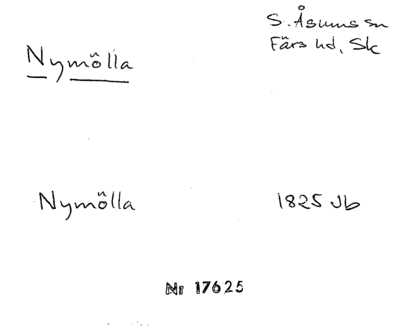 S. Åsums sn
Färs hd, Sk
Nymölla
Nymölla 1825 Jb
Nr 17625